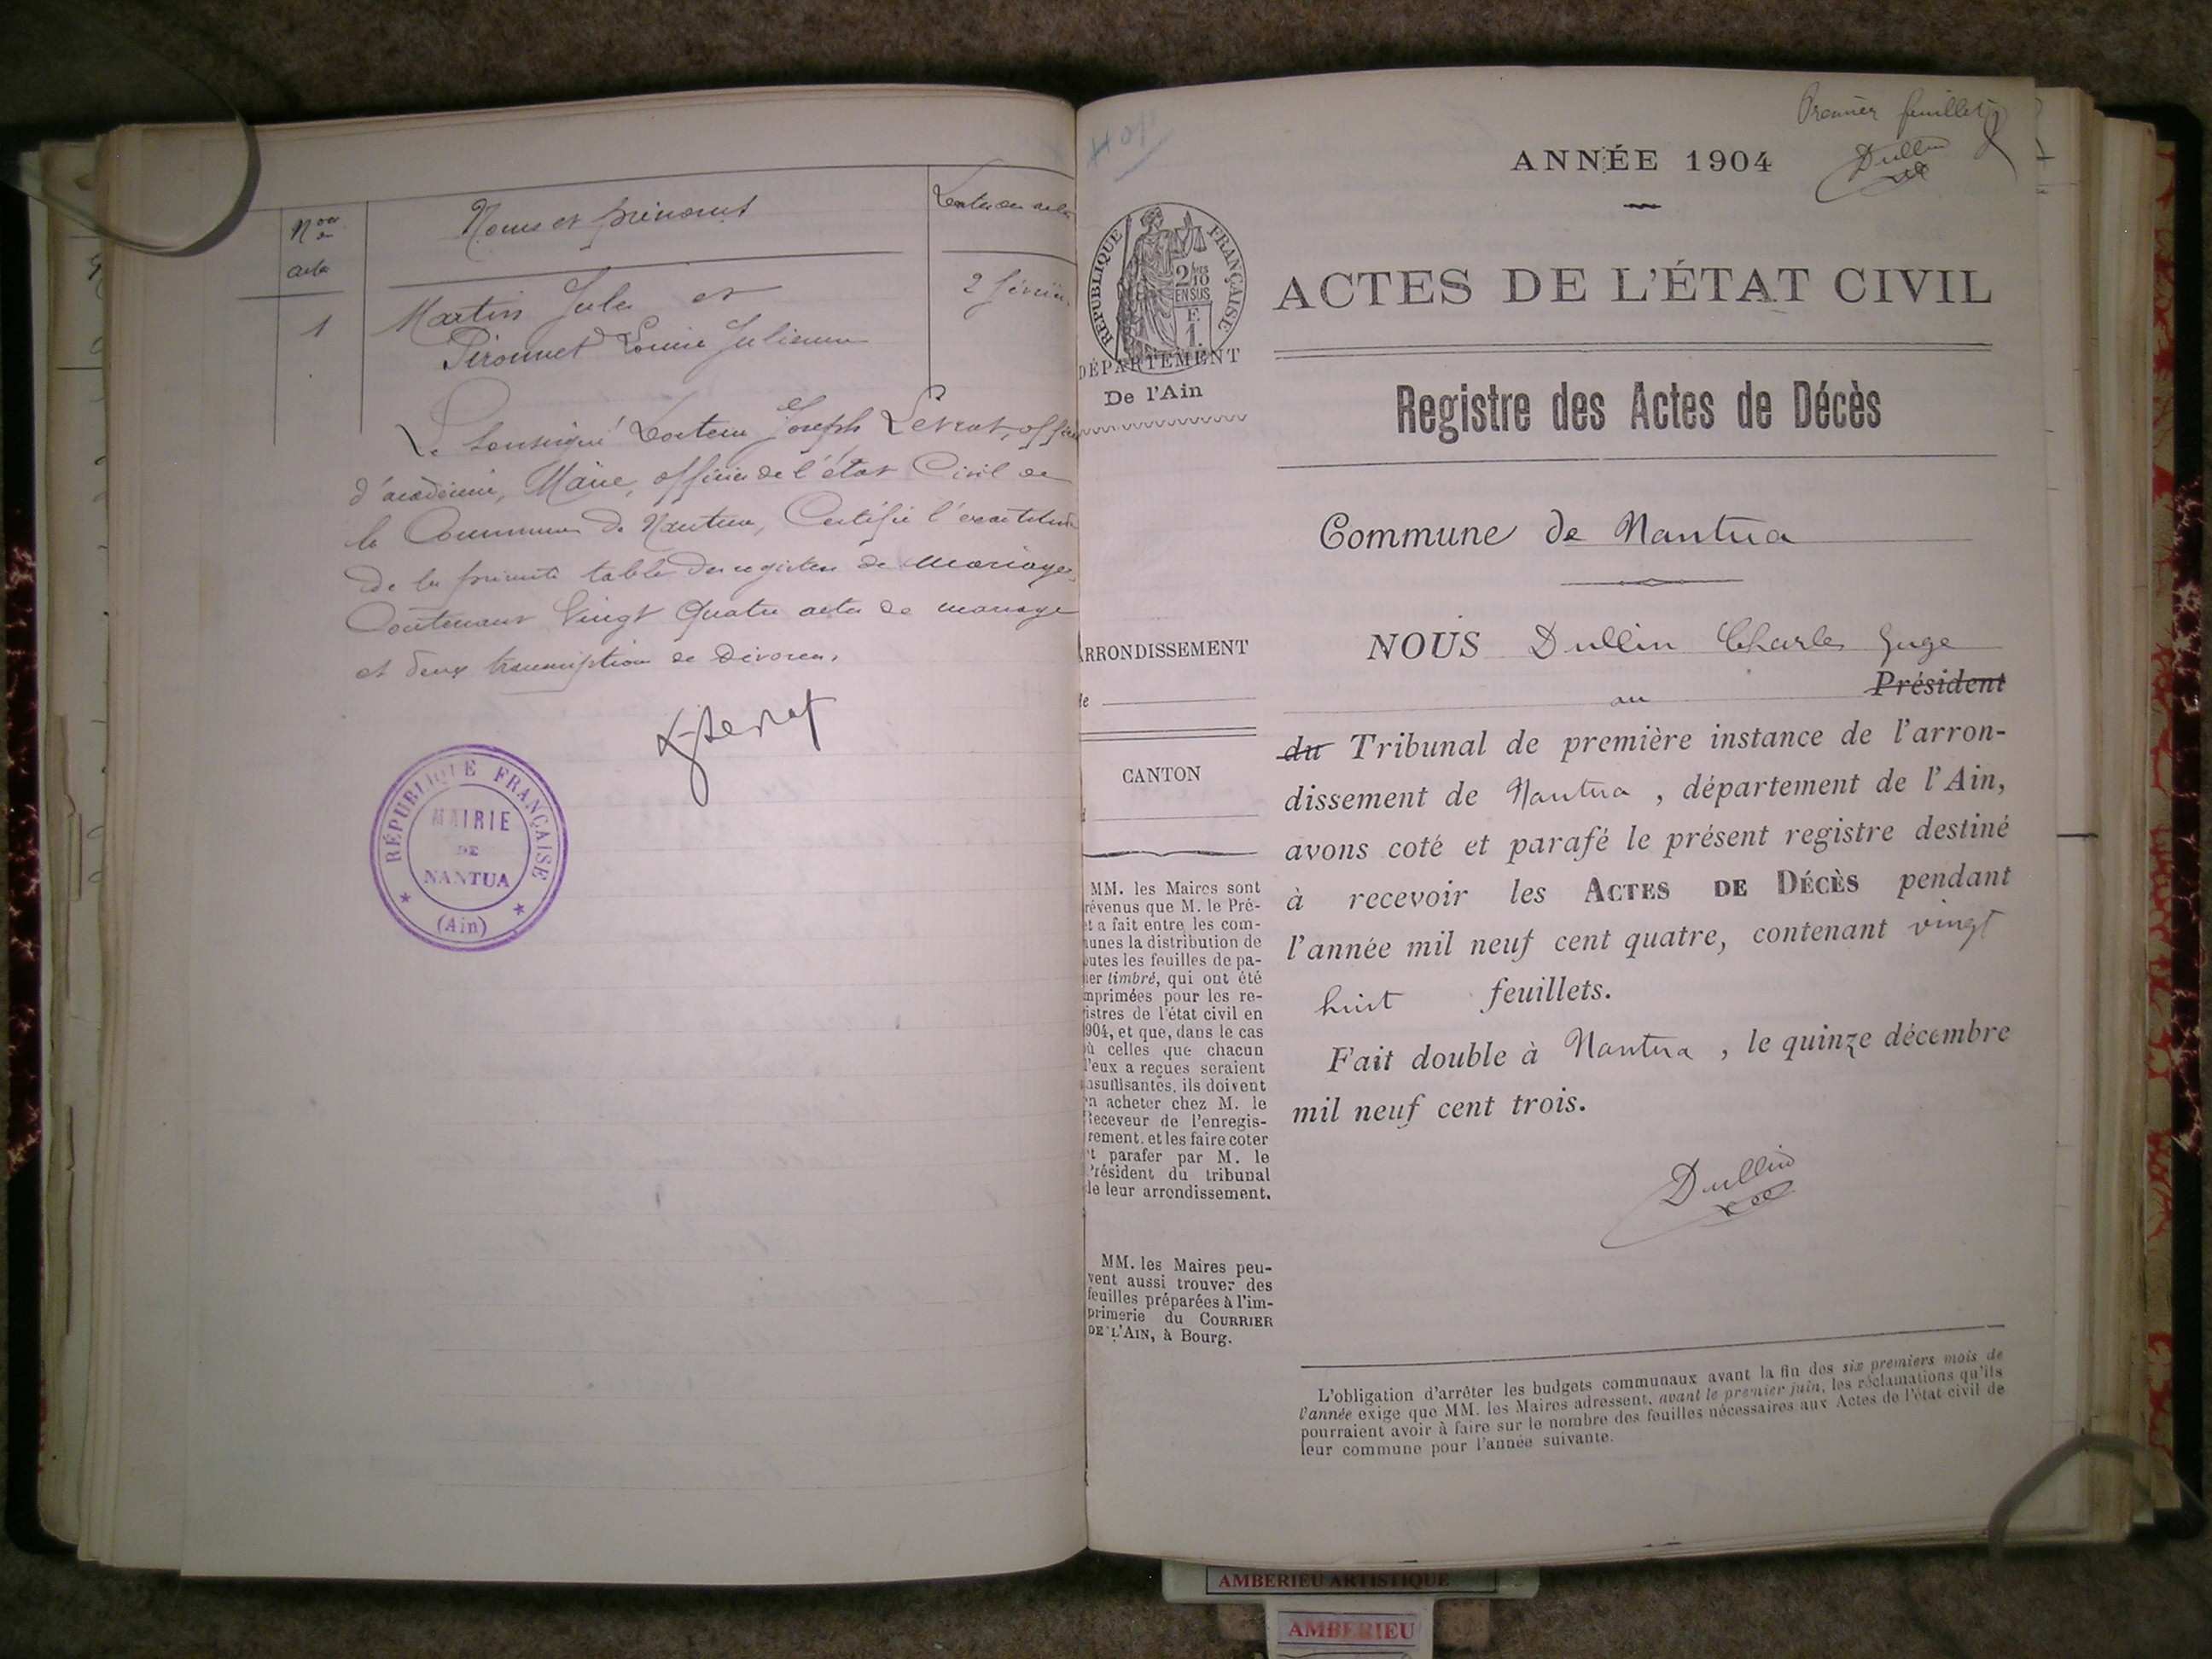 Nos
des
acte
Noms et prénoms
1
Martin Jules et
Pironnet Louise Julienne
2 février
Le soussigné Docteur Joseph Levrat, officier
d'académie, Maire, officier de l'état Civil de
la Commune de Nantua, Certifie l'exactitude
de la présente table des registres de mariages
Contenant Vingt quatre actes de mariage
et deux transcription de Divorces.
RÉPUBLIQUE FRANÇAISE
MAIRIE
DE
NANTUA
(Ain)
Premier feuillet
Dullin
ANNÉE 1904
RÉPUBLIQUE FRANÇAISE
2/10
EN SUS
F.
1.
DÉPARTEMENT
De l'Ain
ACTES DE L'ÉTAT CIVIL
Registre des Actes de Décès
Commune de Nantua
ARRONDISSEMENT
de
CANTON
MM. les Maires sont
prévenus que M. le Pré-
fet a fait entre les com-
munes la distribution de
toutes les feuilles de pa-
pier timbré, qui ont été
imprimées pour les re-
gistres de l'état civil en
1904, et que, dans le cas
où celles que chacun
d'eux a reçues seraient
insuffisantes, ils doivent
en acheter chez M. le
Receveur de l'enregis-
trement, et les faire coter
et parafer par M. le
Président du tribunal
de leur arrondissement.
MM. les Maires peu-
vent aussi trouver des
feuilles préparées à l'im-
primerie du COURRIER
DE L'AIN, à Bourg.
NOUS Dullin Charles Juge
au Président
du Tribunal de première instance de l'arron-
dissement de Nantua, département de l'Ain,
avons coté et parafé le présent registre destiné
à recevoir les ACTES DE DÉCÈS pendant
l'année mil neuf cent quatre, contenant vingt
huit feuillets.
Fait double à Nantua, le quinze décembre
mil neuf cent trois.
Dullin
L'obligation d'arrêter les budgets communaux avant la fin des six premiers mois de
l'année exige que MM. les Maires adressent, avant le premier juin, les réclamations qu'ils
pourraient avoir à faire sur le nombre des feuilles nécessaires aux Actes de l'état civil de
leur commune pour l'année suivante.
AMBERIEU ARTISTIQUE
AMBERIEU